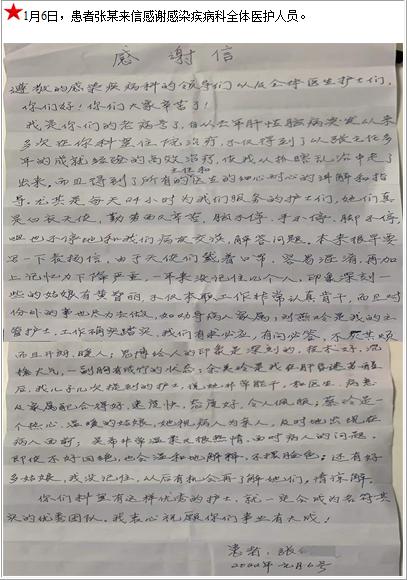 ★1月6日，患者张某来信感谢感染疾病科全体医护人员。
感谢信
尊敬的感染疾病科的领导们以及全体医生护士们，
你们好！你们大家辛苦了！
我是你们的老病号了，自从去年肝性脑病突发以来
多次在你科里住院治疗，不仅得到了以张主任多
年的成就经验的高效治疗，使我从抑郁乱治中走了
出来，而且得到了所有的医生的细心耐心的讲解和指
主任和
导，尤其是每天24小时为我们服务的护士们，她们真
是白衣天使，勤劳而又辛苦，脑不停，手不停，脚不停，
嘴也不停地和我们病友交流，解答问题，本来很早要
写一下表扬信，由于天使们戴着口罩，容易混淆，再加
上记忆力下降严重，一年来没记住几个人，印象深刻一
些的姑娘有黄智丽，不仅本职工作非常认真肯干，而且对
份外的事也尽力去做，如劝导病人家属；刘燕玲是我的主
管护士，工作确实踏实，我们有求必应，有问必答，不厌其烦
而且开朗，暖人；思博给人的印象是深刻的，技术好，沉
稳大气，一副胸有成竹的状态；余美玲是我在肝昏迷苏醒
后，我儿子几次提到的护士，说她非常能干，和医生、病患
及家属配合得好，速度快，态度好，令人佩服；蔡玲是
一个热心、温暖的姑娘，她视病人为亲人，及时地出现在
病人面前；吴莉非常温柔又很热情，面对病人的问题，
即使不好回绝，也会温和地解释，不摆脸色；还有好
多姑娘，我没记住，以后有机会再了解她们，请谅解。
你们科里有这样优秀的护士，就一定会成为名符其
实的优秀团队。我衷心祝愿你们事业有大成！
患者：张
2020年元月6号